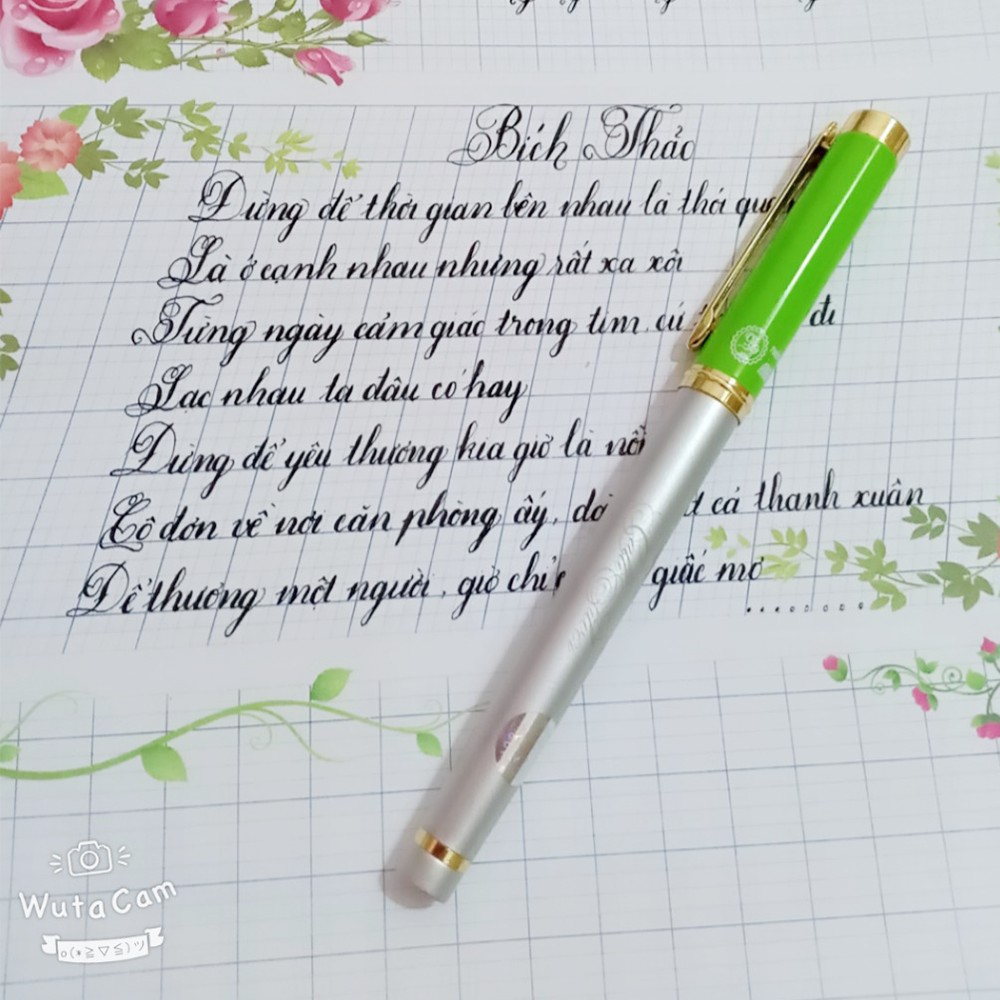 Bích Thảo
Đừng để thời gian bên nhau là thói
Là ở cạnh nhau nhưng rất xa xôi
Từng ngày cảm giác trong tim, cứ đi
Lạc nhau ta đâu có hay
Đừng để yêu thương kia giờ là nỗi
Cô đơn về nơi căn phòng ấy, cả thanh xuân
Để thương một người, giờ chỉ giấc mơ
.........
WutaCam